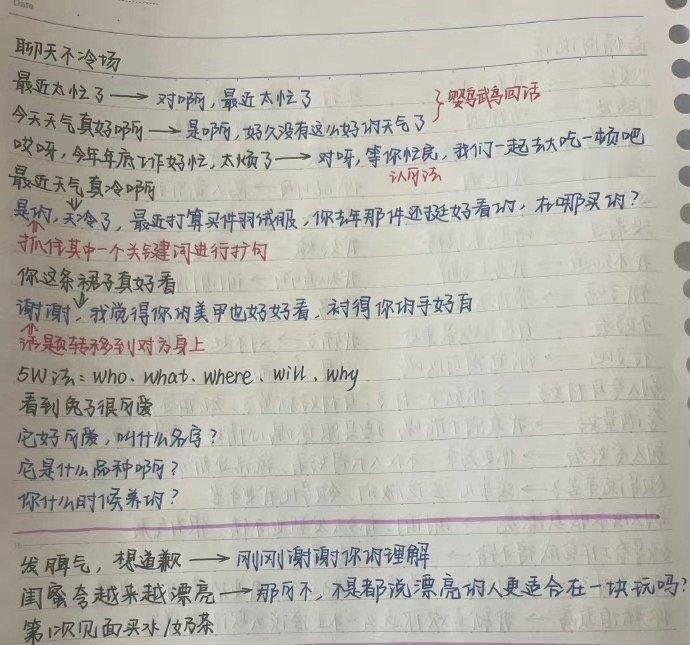 Date
聊天不冷场
最近太忙了→对啊，最近太忙了
今天天气真好啊→是啊，好久没有这么好的天气了
}鹦鹉回话
哎呀，今年年底工作好忙，太烦了→对呀，等你忙完，我们一起去大吃一顿吧
认同法
最近天气真冷啊
是的，天冷了，最近打算买件羽绒服，你去年那件还挺好看的，在哪买的？
抓住其中一个关键词进行扩句
你这条裙子真好看
谢谢，我觉得你的美甲也好好看，衬得你的手好白
话题转移到对方身上
5W法：who、what、where、will、why
看到兔子很可爱
它好可爱，叫什么名字？
它是什么品种啊？
你什么时候养的？
发脾气，想道歉→刚刚谢谢你的理解
闺蜜夸越来越漂亮→那可不，不是都说漂亮的人更适合在一块玩吗？
第1次见面买水/奶茶